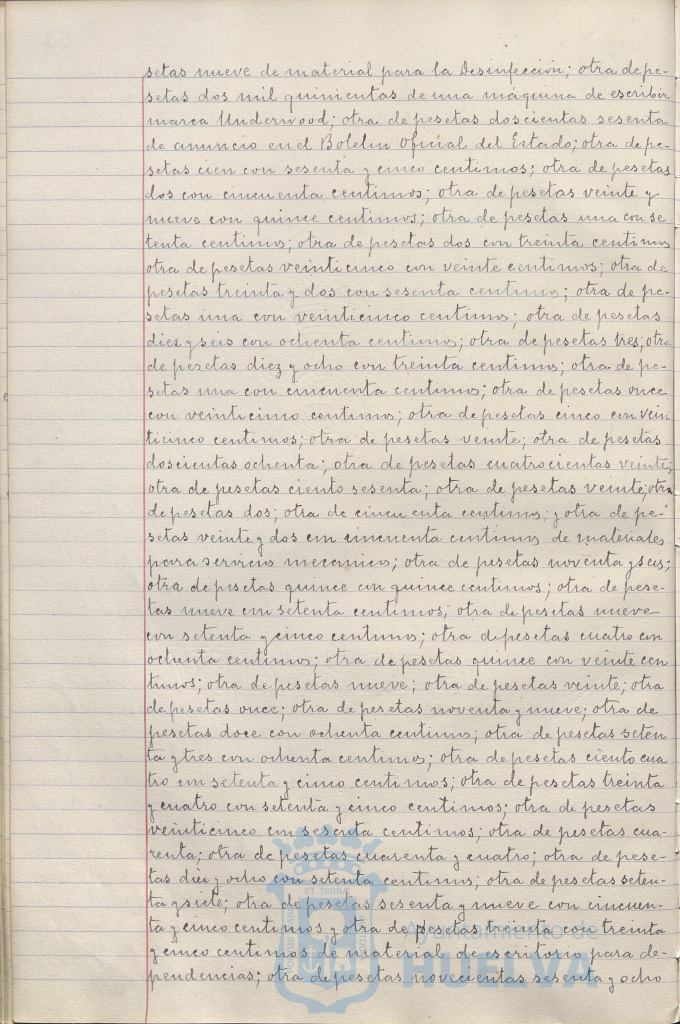 setas nueve de material para la Desinfección; otra de pe-
setas dos mil quinientas de una máquina de escribir
marca Underwood; otra de pesetas doscientas sesenta
de anuncio en el Boletin Oficial del Estado; otra de pe-
setas cien con sesenta y cinco centimos; otra de pesetas
dos con cincuenta centimos; otra de pesetas veinte y
nueve con quince centimos; otra de pesetas una con se
tenta centimos; otra de pesetas dos con treinta centimos
otra de pesetas veinticinco con veinte centimos; otra de
pesetas treinta y dos con sesenta centimos; otra de pe-
setas una con veinticinco centimos; otra de pesetas
diez y seis con ochenta centimos; otra de pesetas tres; otra
de pesetas diez y ocho con treinta centimos; otra de pe-
setas una con cincuenta centimos; otra de pesetas once
con veinticinco centimos; otra de pesetas cinco con vein
ticinco centimos; otra de pesetas veinte; otra de pesetas
doscientas ochenta; otra de pesetas cuatrocientas veinte;
otra de pesetas ciento sesenta; otra de pesetas veinte; otra
de pesetas dos; otra de cincuenta centimos; y otra de pe-
setas veinte y dos con cincuenta centimos de materiales
para servicios mecanicos; otra de pesetas noventa y seis;
otra de pesetas quince con quince centimos; otra de pese-
tas nueve con setenta centimos; otra de pesetas nueve
con setenta y cinco centimos; otra de pesetas cuatro con
ochenta centimos; otra de pesetas quince con veinte cen
timos; otra de pesetas nueve; otra de pesetas veinte; otra
de pesetas once; otra de pesetas noventa y nueve; otra de
pesetas doce con ochenta centimos; otra de pesetas seten
ta y tres con ochenta centimos; otra de pesetas ciento cua
tro con setenta y cinco centimos; otra de pesetas treinta
y cuatro con setenta y cinco centimos; otra de pesetas
veinticinco con sesenta centimos; otra de pesetas cua-
renta; otra de pesetas cuarenta y cuatro; otra de pese-
tas diez y ocho con setenta centimos; otra de pesetas seten-
ta y siete; otra de pesetas sesenta y nueve con cincuen-
ta y cinco centimos y otra de pesetas treinta con treinta
y cinco centimos de material de escritorio para de-
pendencias; otra de pesetas novecientas sesenta y ocho
Ayuntamiento de
HUELVA